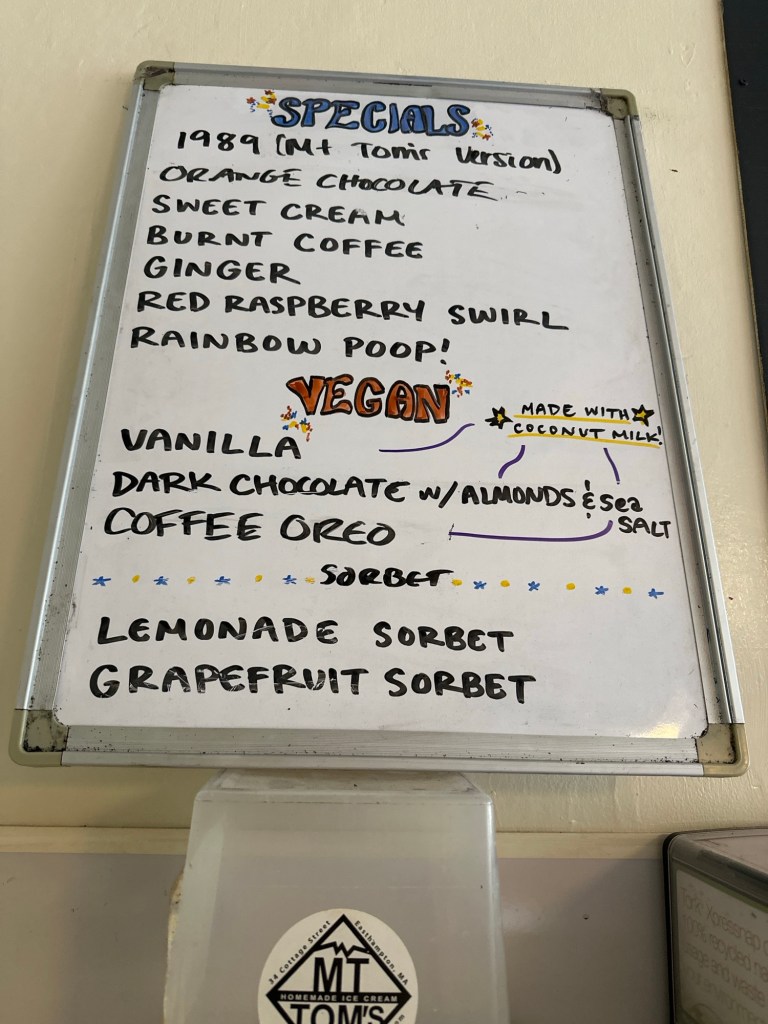 SPECIALS
1989 (Mt Tom's Version)
ORANGE CHOCOLATE
SWEET CREAM
BURNT COFFEE
GINGER
RED RASPBERRY SWIRL
RAINBOW POOP!
VEGAN
MADE WITH
COCONUT MILK!
VANILLA
DARK CHOCOLATE w/ ALMONDS & Sea
SALT
COFFEE OREO
SORBET
LEMONADE SORBET
GRAPEFRUIT SORBET
34 Cottage Street Easthampton, MA
MT
HOMEMADE ICE CREAM
TOM'S